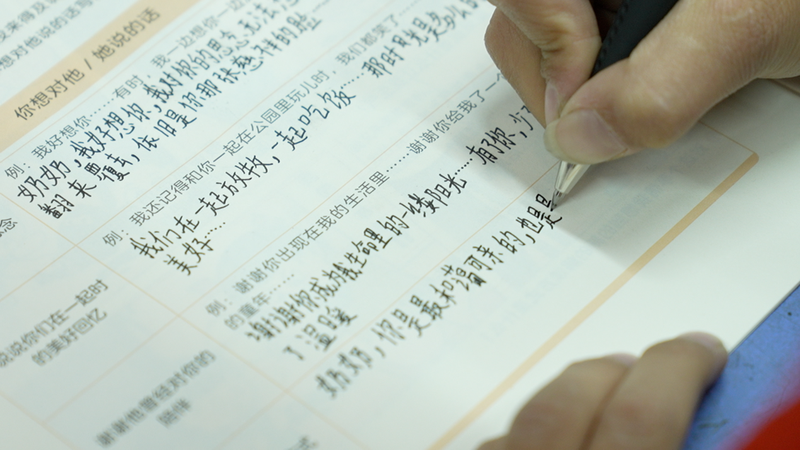 想对他说的话写
你想对他 / 她说的话
例：我好想你……有时，我一边想你一边
奶奶，我好想你，我对你的思念无法
翻来覆去，依旧是你那张慈祥的脸
念
例：我还记得和你一起在公园里玩儿时，我们都笑了……
我们在一起放牧，一起吃饭……那时可真是多么的
美好……
说说你们在一起时
的美好回忆
例：谢谢你出现在我的生活里……谢谢你给我了一
的童年……
谢谢你成为我生命里的一缕阳光……有了你，
了温暖
谢谢他曾经对你的
陪伴
奶奶，你是最和蔼可亲的，也是